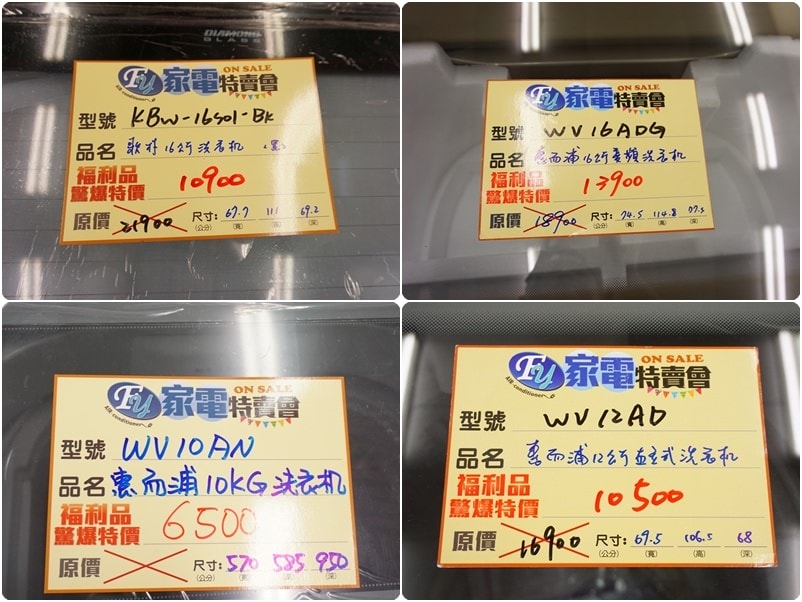 DIAMOND
GLASS
Fy 家電特賣會
ON SALE
Air conditioner
型號 KBW-16S01-BK
品名 歌林16公斤洗衣机 (黑)
福利品
驚爆特價 10900
原價 21900 尺寸: 67.7 111 69.2
(公分) (寬) (高) (深)
Fy 家電特賣會
ON SALE
Air conditioner
型號 WV16ADG
品名 惠而浦16公斤變頻洗衣机
福利品
驚爆特價 13900
原價 18900 尺寸: 74.5 114.8 77.5
(公分) (寬) (高) (深)
Fy 家電特賣會
ON SALE
Air conditioner
型號 WV10AN
品名 惠而浦10KG洗衣机
福利品
驚爆特價 6500
原價 尺寸: 570 585 950
(公分) (寬) (高) (深)
Fy 家電特賣會
ON SALE
Air conditioner
型號 WV12AD
品名 惠而浦12公斤直立式洗衣机
福利品
驚爆特價 10500
原價 16900 尺寸: 69.5 106.5 68
(公分) (寬) (高) (深)